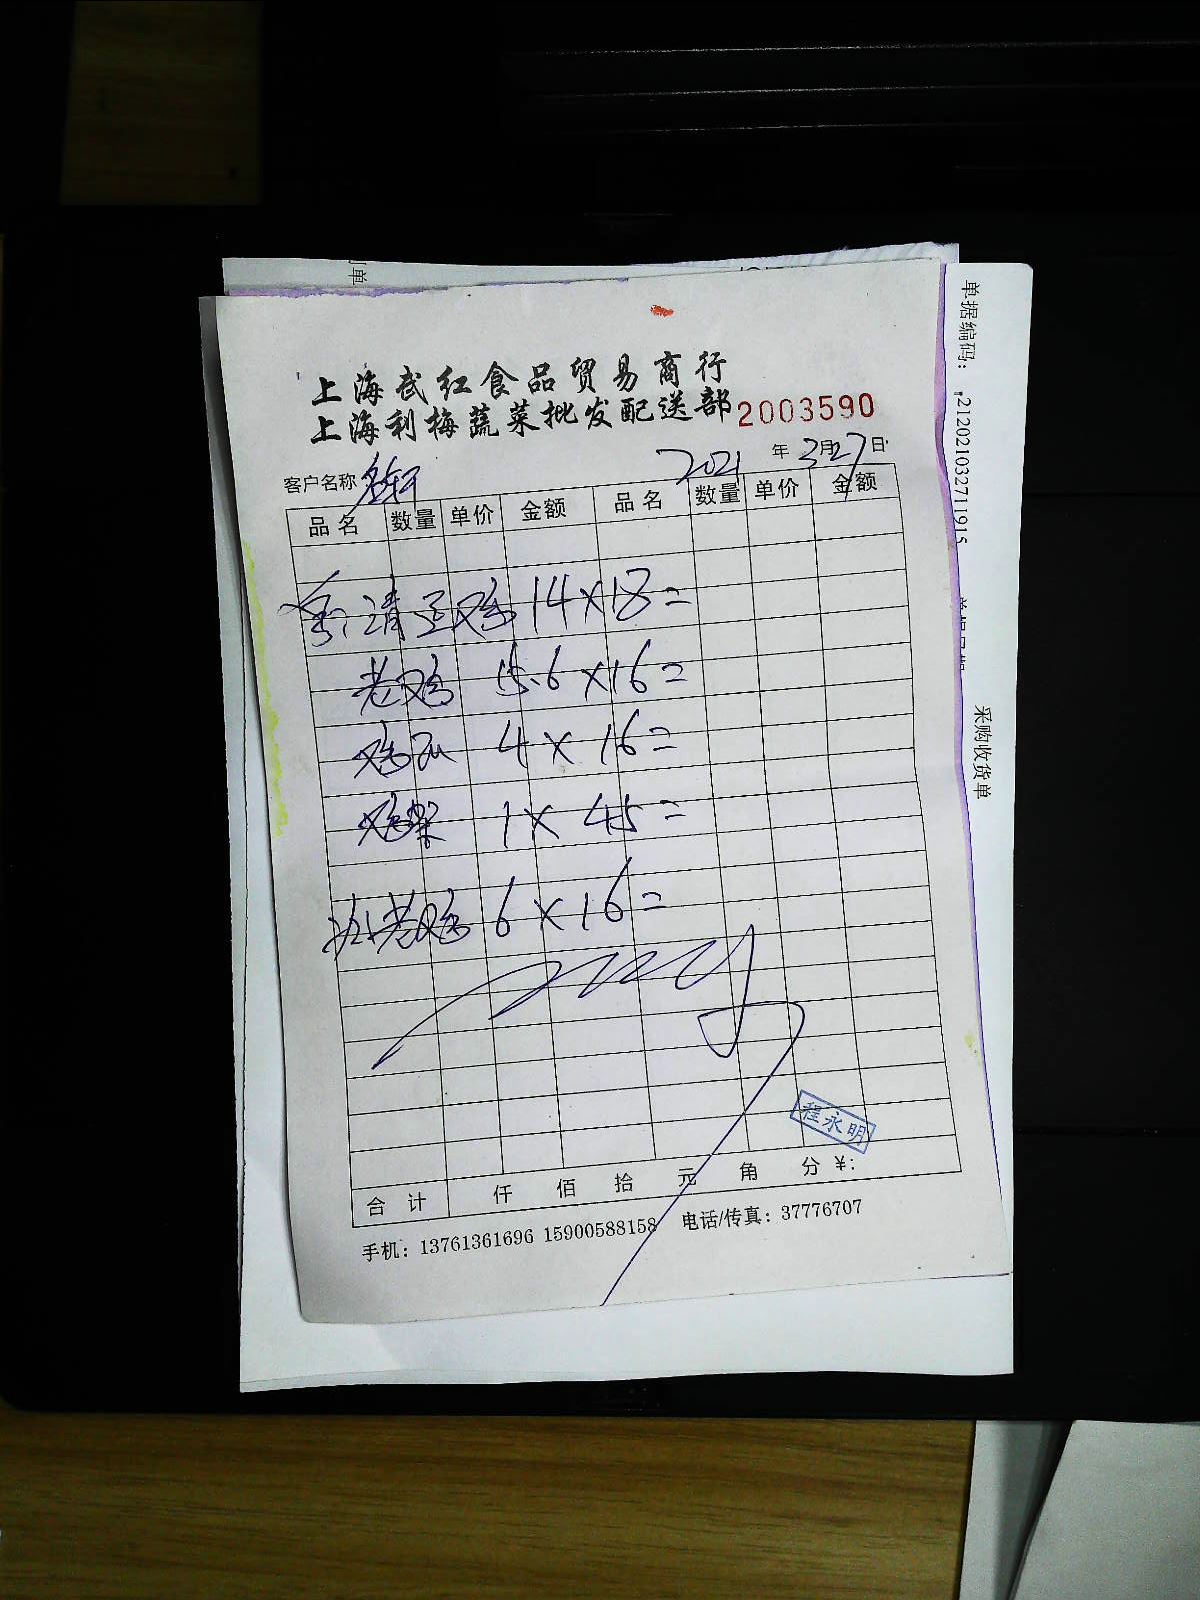 上海武红食品贸易商行
上海利梅蔬菜批发配送部 2003590
客户名称 2021年3月27日
品名 数量 单价 金额 品名 数量 单价 金额
清远鸡 14×18=
老鸡 15.6×16=
鸡爪 4×16=
鸡架 1×45=
老鸡 6×16=
程永明
合计 仟 佰 拾 元 角 分 ¥:
手机: 13761361696 15900588158 电话/传真: 37776707
单据编码:
212021032711915
采购收货单